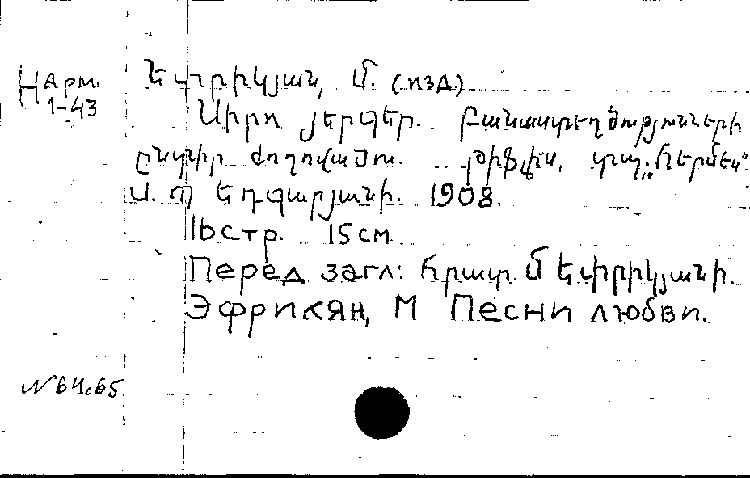 Нарм. 1-43
Եփրիկյան, Մ. (изд.)
Սիրո յերգեր. Բանաստեղծությունների
ընտիր ժողովածու. Թիֆլիս, տպ. „Հերմես“
Ս. Պ. Եղգարյանի. 1908.
16 стр. 15 см
Перед загл: հրատ. Մ Եփրիկյանի.
Эфрикян, М Песни любви.
N 64.65